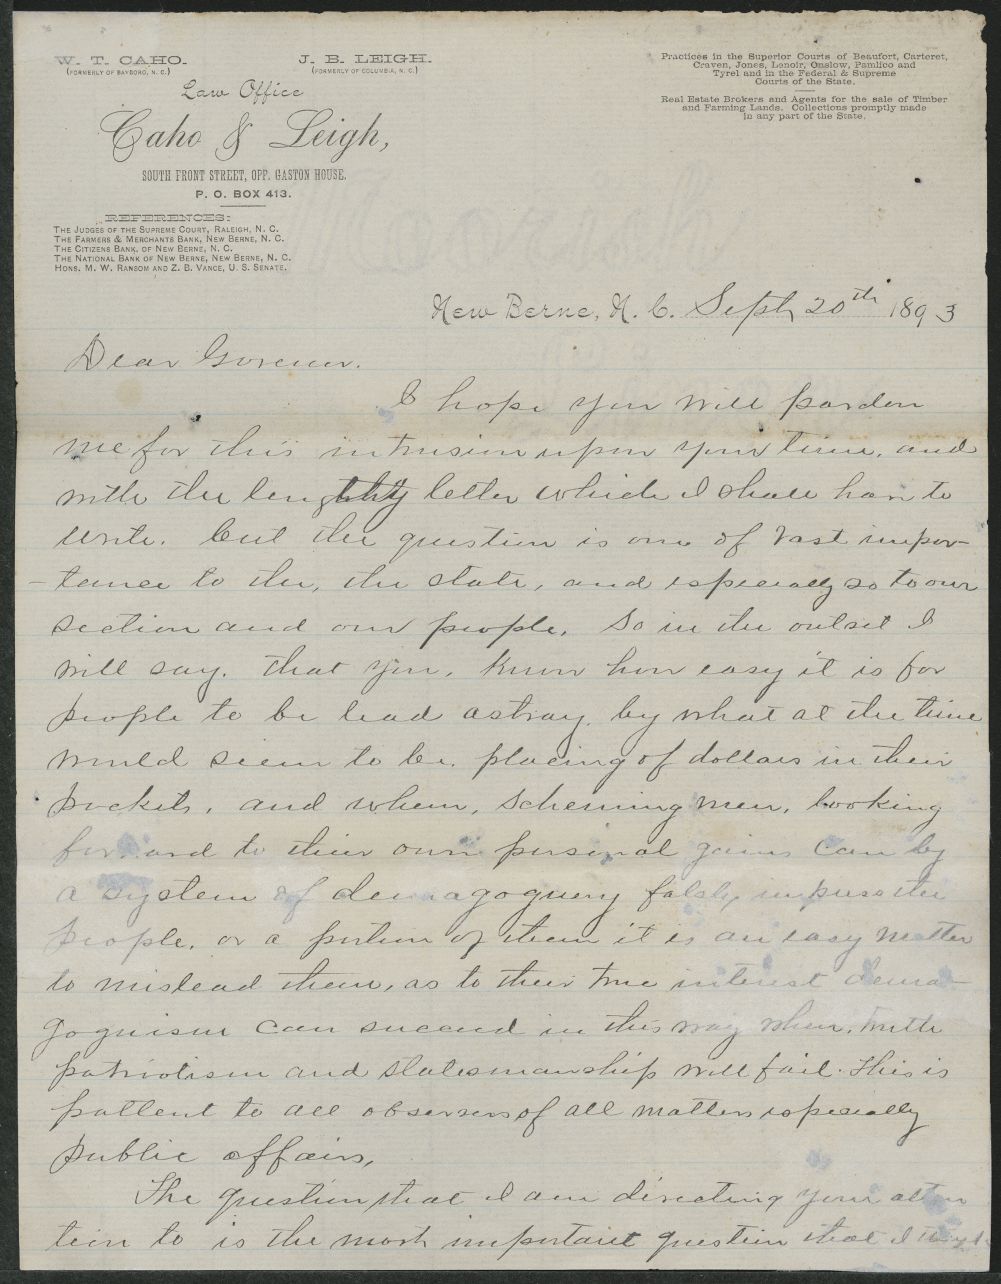 W. T. CAHO.
(FORMERLY OF BAYBORO, N. C.)
J. B. LEIGH.
(FORMERLY OF COLUMBIA, N. C.)
Law Office
Caho & Leigh,
SOUTH FRONT STREET, OPP. GASTON HOUSE.
P. O. BOX 413.
REFERENCES:
THE JUDGES OF THE SUPREME COURT, RALEIGH, N. C.
THE FARMERS & MERCHANTS BANK, NEW BERNE, N. C.
THE CITIZENS BANK, OF NEW BERNE, N. C.
THE NATIONAL BANK OF NEW BERNE, NEW BERNE, N. C.
HONS. M. W. RANSOM AND Z. B. VANCE, U. S. SENATE.
Practices in the Superior Courts of Beaufort, Carteret,
Craven, Jones, Lenoir, Onslow, Pamlico and
Tyrel and in the Federal & Supreme
Courts of the State.
Real Estate Brokers and Agents for the sale of Timber
and Farming Lands. Collections promptly made
in any part of the State.
New Berne, N. C. Sept 20th 1893
Dear Governor.
I hope you will pardon
me for this intrusion upon your time, and
with the lengthty letter which I shall have to
write. but the question is one of vast impor-
-tance to the, the state, and especially so to our
section and our people. So in the outset I
will say. that you, know how easy it is for
people to be lead astray by what at the time
would seem to be placing of dollars in their
pockets, and when, scheming men, looking
forward to their own personal gains can by
a system of demagoguery falsly impress the
people, or a portion of them it is an easy matter
to mislead them, as to their true interest dema-
goguism can succeed in this way when, truth
patriotism and statesmanship will fail. This is
pattent to all observers of all matters especially
public affairs,
The question that I am directing your atten
tion to is the most important question that I